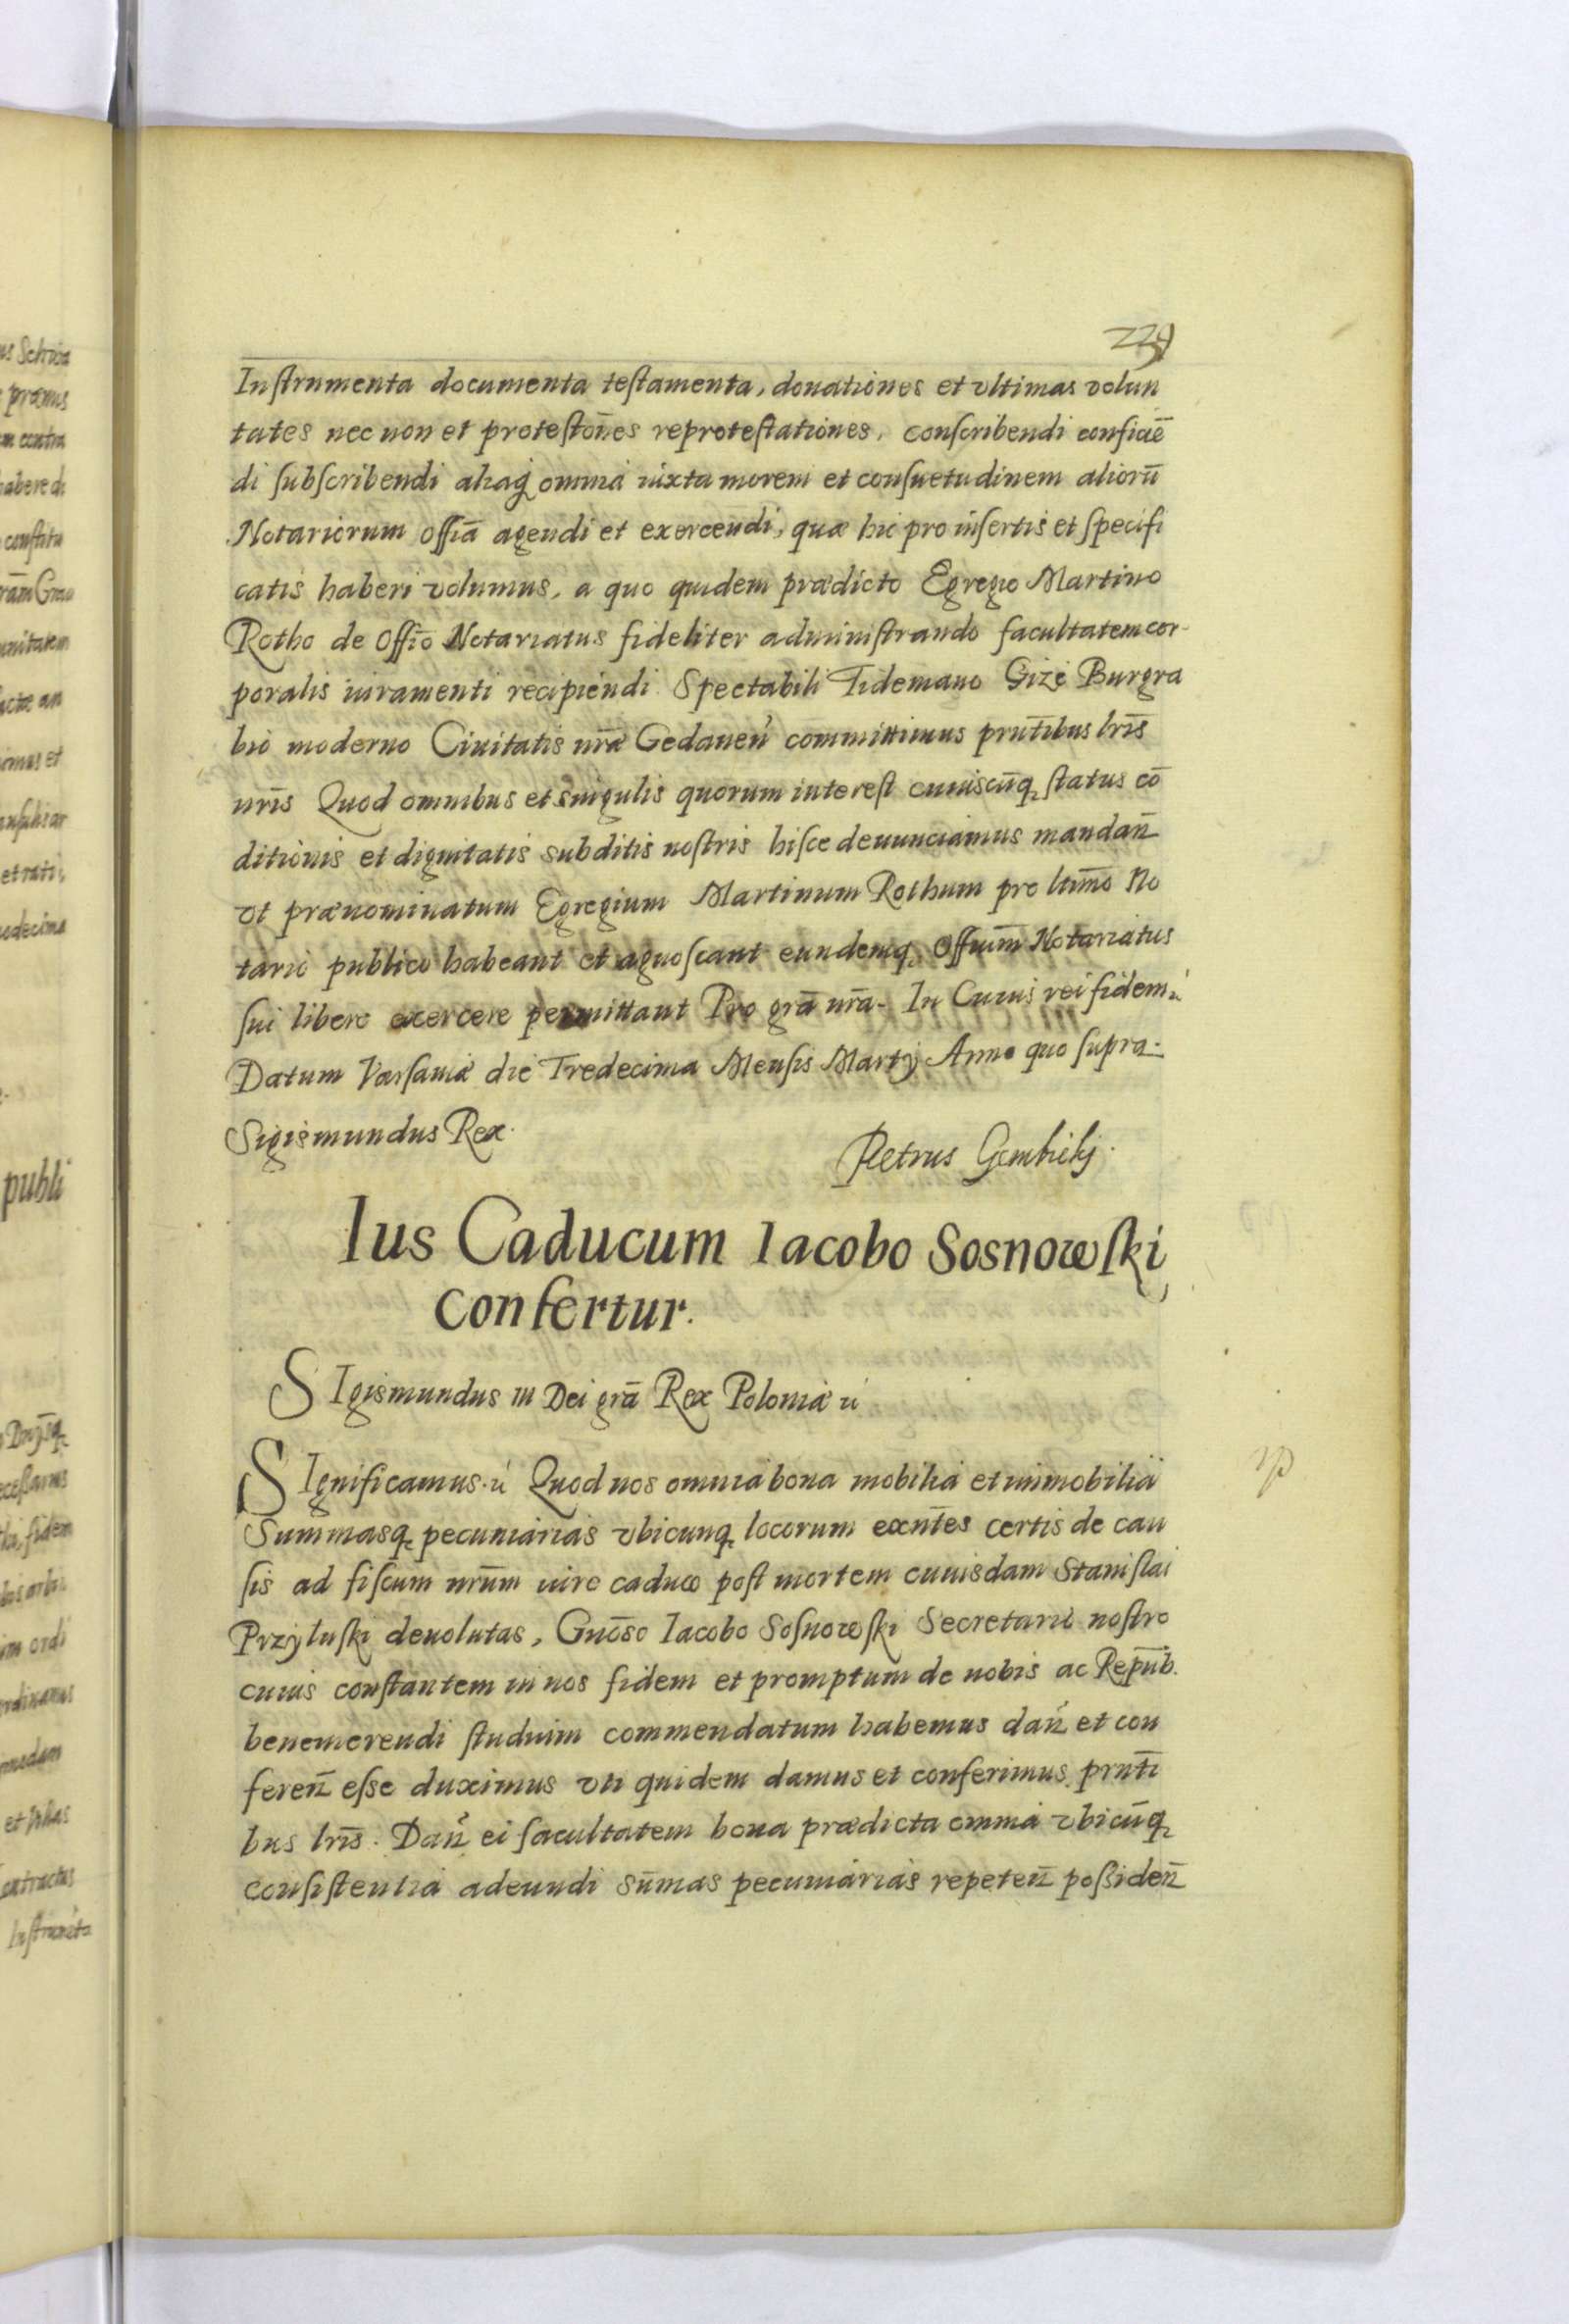 239
Instrumenta documenta testamenta, donationes et vltimas volun
tates nec non et protestōnes reprotestationes, conscribendi conficiē
di subscribendi aliaq omnia iuxta morem et consuetudinem aliorū
Notariorum offiā agendi et exercendi, quæ hic pro insertis et specifi
catis haberi volumus, a quo quidem prædicto Egregio Martino
Rotho de Offīo Notariatus fideliter administrando facultatem cor-
poralis iuramenti recipiendi Spectabili Tidemano Gize Burgra
bio moderno Ciuitatis nræ Gedanen committimus prntibus lrīs
nrīs Quod omnibus et singulis quorum interest cuiuscūq status cō
ditionis et dignitatis subditis nostris hisce denunciamus mandan̄
vt prænominatum Egregium Martinum Rothum pro ltimo No
tario publico habeant et agnoscant eundemq Offium Notariatus
sui libere exercere permittant Pro grā nrā. In Cuius rei fidem
Datum Varsauiæ die Tredecima Mensis Martÿ Anno quo supra.
Sigismundus Rex.
Petrus Gembicki.
Ius Caducum Iacobo Sosnowski
confertur.
SIgismundus III Dei grā Rex Poloniæ
SIgnificamus. Quod nos omnia bona mobilia et immobilia
Summasq pecuniarias vbicunq locorum exntes certis de cau
sis ad fiscum nrum iure caduco post mortem cuiusdam Stanislai
Przyluski deuolutas, Gnōso Iacobo Sosnowski Secretario nostro
cuius constantem in nos fidem et promptum de nobis ac Repub.
benemerendi studium commendatum habemus dan et con
feren̄ esse duximus vti quidem damus et conferimus prnti
bus lrīs. Dan ei facultatem bona prædicta omnia vbicūq
consistentia adeundi sūmas pecuniarias repeten̄ possiden̄